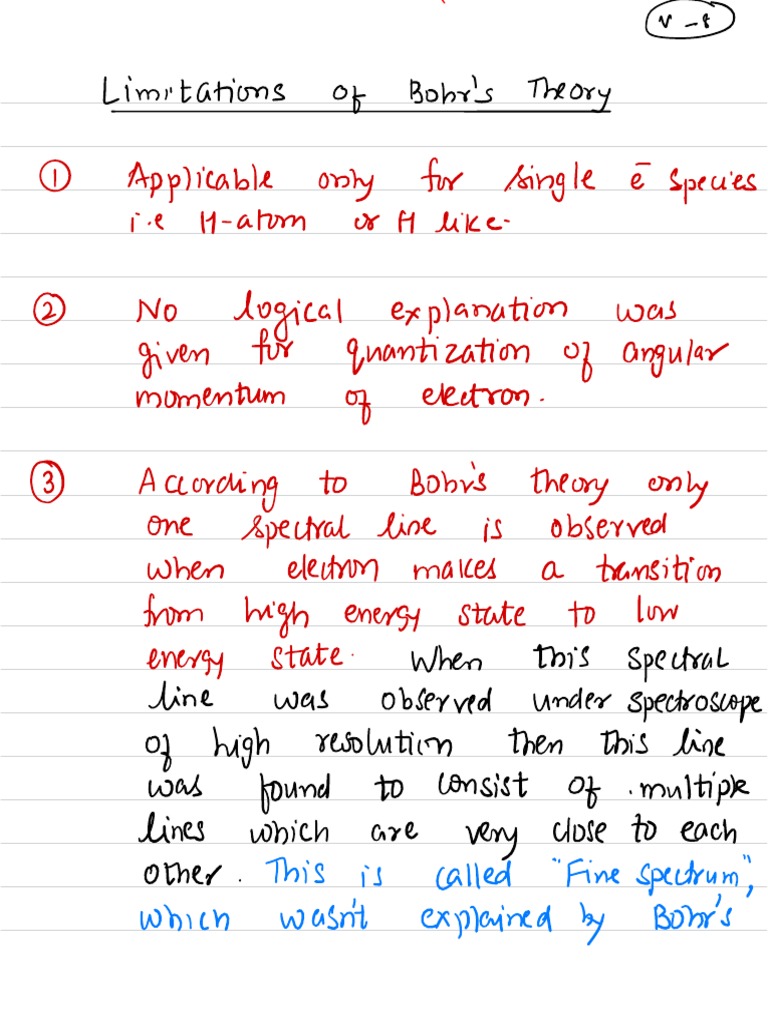 v-8
Limitations of Bohr's Theory
① Applicable only for single ē species
i.e H-atom or H like.
② No logical explanation was
given for quantization of angular
momentum of electron.
③ According to Bohr's theory only
one spectral line is observed
when electron makes a transition
from high energy state to low
energy state. When this spectral
line was observed under spectroscope
of high resolution then this line
was found to consist of multiple
lines which are very close to each
other. This is called "Fine spectrum",
which wasn't explained by Bohr's